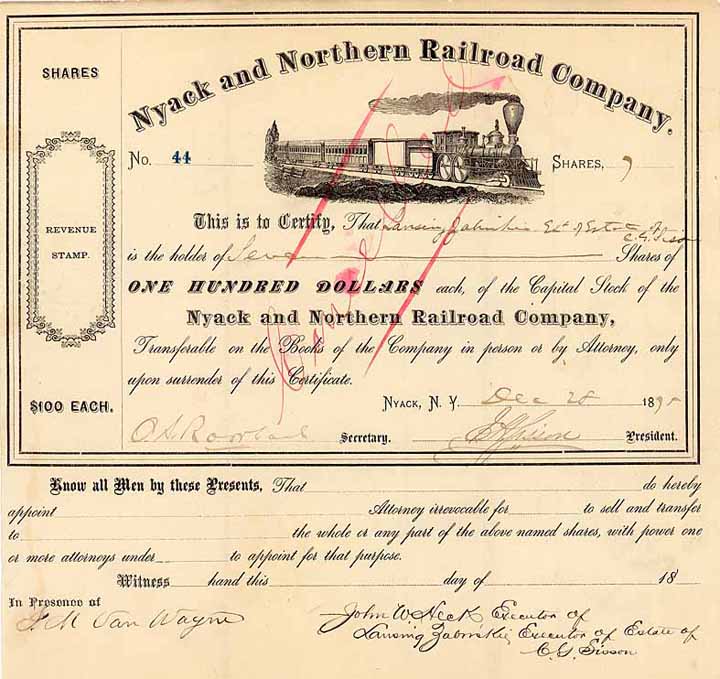 Nyack and Northern Railroad Company.
SHARES
No. 44
SHARES, 7
REVENUE
STAMP.
This is to Certify, That Lansing Zabriskie Ex. of Estate of
C. G. Sisson
is the holder of Seven Shares of
ONE HUNDRED DOLLARS each, of the Capital Stock of the
Nyack and Northern Railroad Company,
Transferable on the Books of the Company in person or by Attorney, only
upon surrender of this Certificate.
Cancelled
$100 EACH.
NYACK, N. Y. Dec 28 1895
Secretary.
Sisson President.
Know all Men by these Presents, That do hereby
appoint Attorney irrevocable for to sell and transfer
to the whole or any part of the above named shares, with power one
or more attorneys under to appoint for that purpose.
Witness hand this day of 18
In Presence of
M Van Wayne
John W Heck Executor of
Lansing Zabriskie, Executor of Estate of
C. G. Sisson